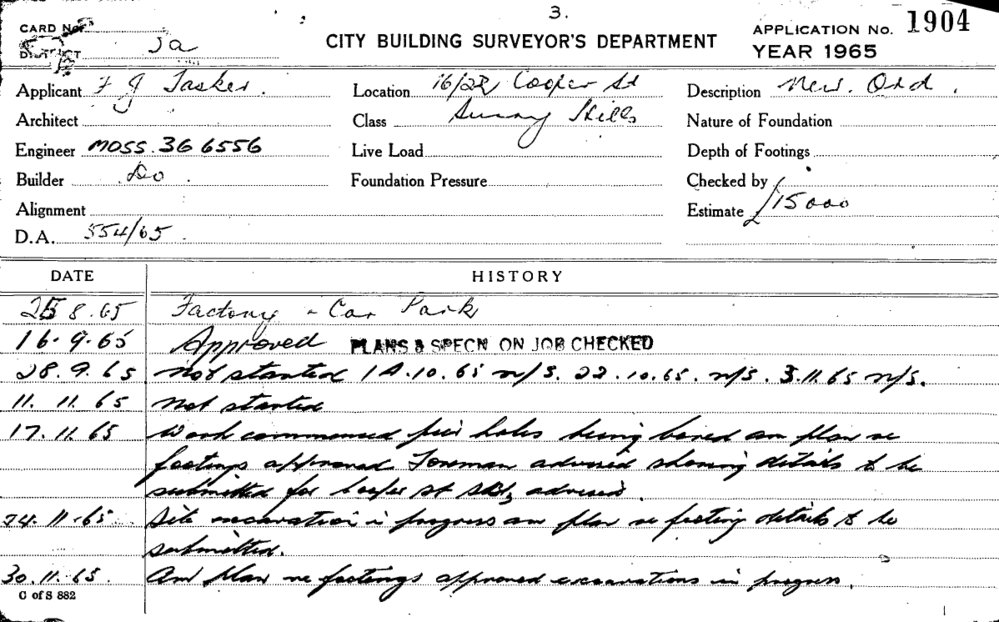 3.
CARD No.
DISTRICT 3a
CITY BUILDING SURVEYOR'S DEPARTMENT
APPLICATION No. 1904
YEAR 1965
Applicant F J Tasker.
Location 16/22 Cooper St
Description New. Ord.
Architect
Class Surry Hills
Nature of Foundation
Engineer MOSS. 36 6556
Live Load
Depth of Footings
Builder Do.
Foundation Pressure
Checked by
Alignment
Estimate £15000
D.A. 554/65
DATE HISTORY
25 8.65 Factory - Car Park
16.9.65 Approved PLANS & SPECN ON JOB CHECKED
28.9.65 Not started 14.10.65 n/s. 22.10.65. n/s. 3.11.65 n/s.
11.11.65 Not started
17.11.65 Work commenced pier holes being bored am plan re
footings approved Foreman advised shoring details to be
submitted for Cooper St advised.
24.11.65 Site excavation in progress am plan re footing details to be
submitted.
30.11.65. Am plan re footings approved excavations in progress.
C of S 882